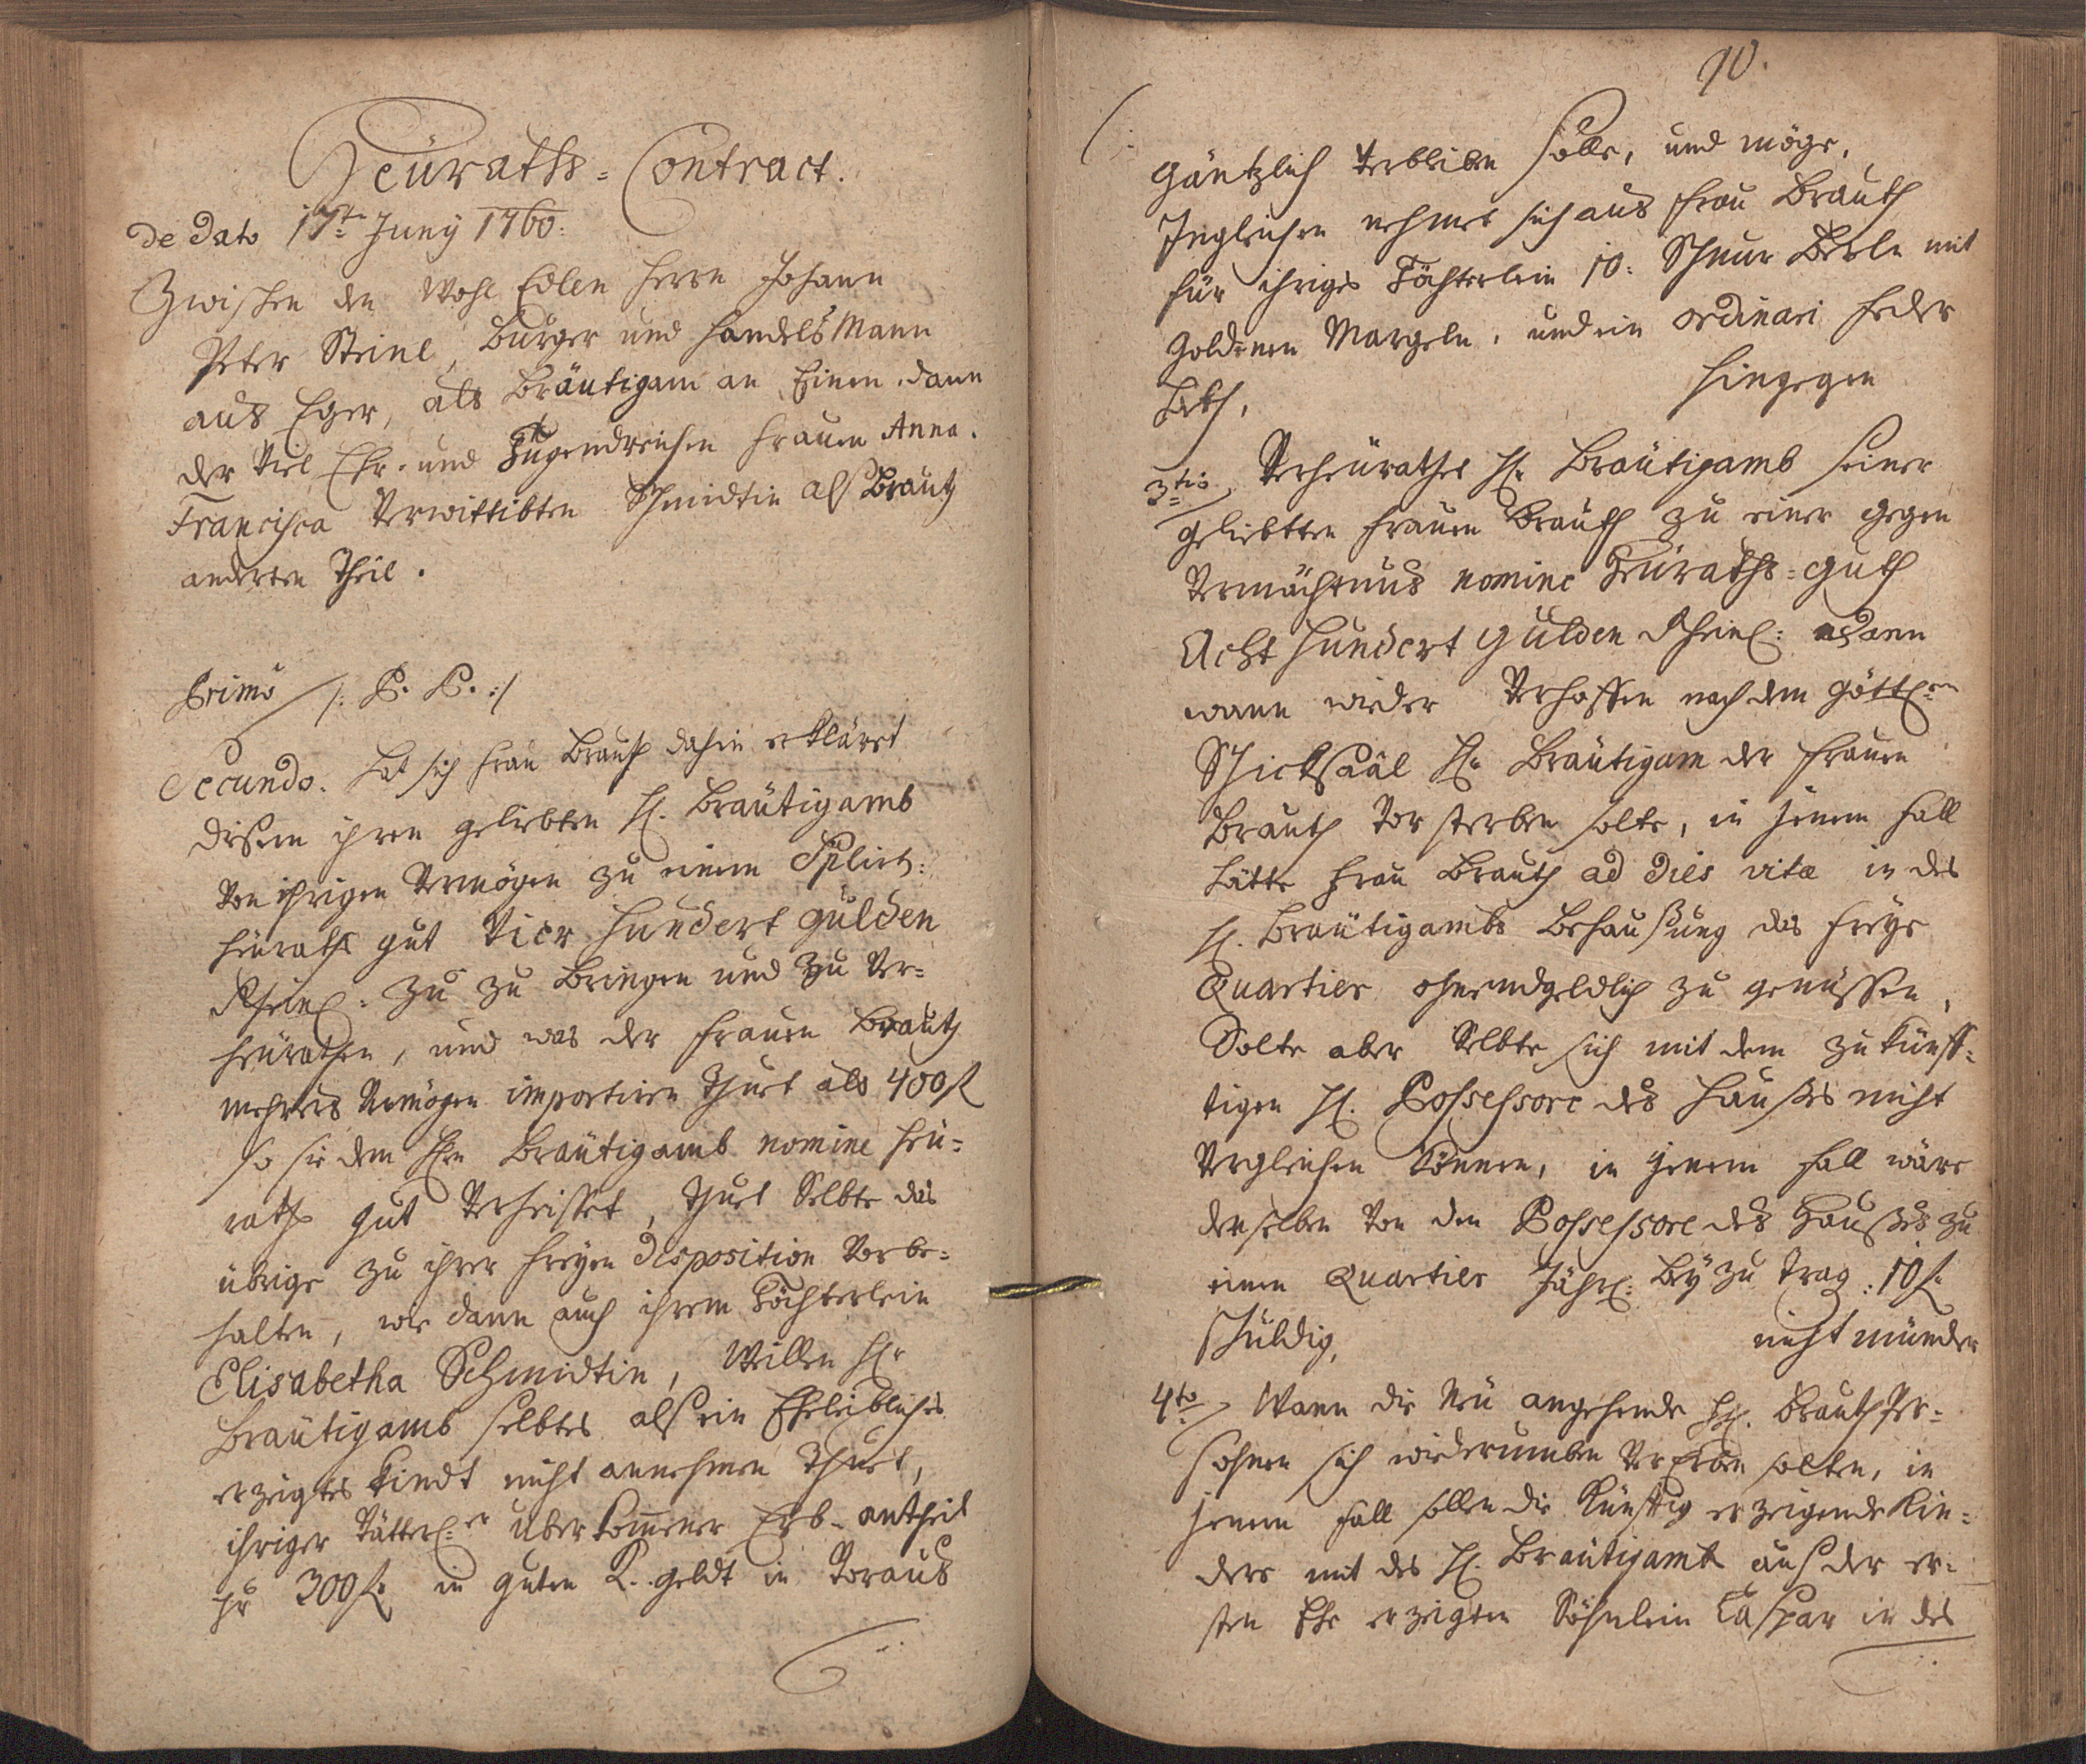 Heüraths=Contract.
de dato 17te Juny 1760.
Zwischen den Wohl Edlen Herrn Johann
Peter Steinl, burger und HandelsMann
aus Eger, als Bräutigam an Einem, dann
der Viel Ehr- und Tugendreichen Frauen Anna
Francisca Verwittibten Schmidtin als Brauth
anderten Theil.
Primò /: P. P. :/
Secundo. hat sich Frau Brauth dahin erkläret
disem ihren geliebten H. Bräutigamb
Von ihrigen Vermögen zu einem
heürath gut Vier Hundert gulden
Rheinl: zu zu bringen und zu Ver=
heürathen, und was der Frauen Brauth
mehrers Vermögen importiren thuet als 400 fl
so sie dem Hrn Bräutigamb nomine heü=
rath gut Verheisset, thuet Selbte das
übrige zu ihrer freyen disposition Vorbe=
halten, wie dann auch ihrem Töchterlein
Elisabetha Schmidtin, Willen Hr
Bräutigamb selbtes als ein Eheleibliches
erzeigtes Kindt nicht annehmen thuet,
ihriger Vätterl:er überkommener Erb-antheil
pr 300 fl in guten K. geldt in Voraus
90.
gäntzlich Verbleiben solle, und möge,
Ingleichen nehmet sich aus Frau Brauth
für ihriges Töchterlein 10: Schnur Berln mit
goldenen Margeln, und ein ordinari feder
beth,
hingegen
3tio Verheürathet Hr Bräutigamb seiner
geliebtten Frauen Brauth zu einer gegen
Vermächtnus nomine Heüraths=guth
Acht Hundert Gulden Rheinl: dann
wann wieder Verhoffen nach dem göttl:en
Schicksaal Hr Bräutigam der Frauen
Brauth Vorsterben solte, in jenem fall
hätte Frau Brauth ad dies vitæ in des
H. Bräutigambs Behaußung das freye
Quartier ohnendgeldlich zu genüssen,
Solte aber Selbte sich mit dem zukünff=
tigen H. Possessore des Hauses nicht
Vergleichen können, in jenem fall wäre
derselben Von den Possessore des Haußes zu
einen Quartier Jährl: bey zu trag: 10 fl
schuldig,
nicht münder
4to Wann die Neü angehende HH. BrauthPer=
sohnen sich wiederumben Vererben solten, in
jenem fall sollen die Künfftig erzeigende Kin=
der mit des H. Bräutigamb aus der er=
sten Ehe erzeigten Söhnlein Caspar in des